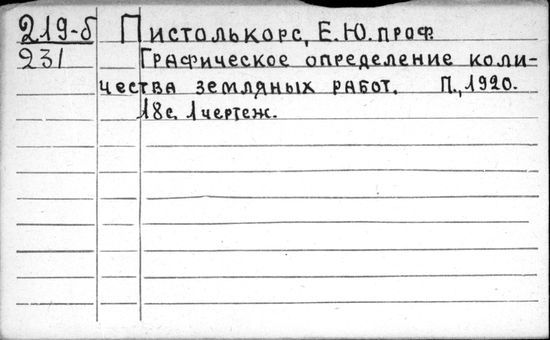 219-б Пистолькорс, Е.Ю. проф.
231 Графическое определение коли-
чества земляных работ. П., 1920.
18с. 1 чертеж.